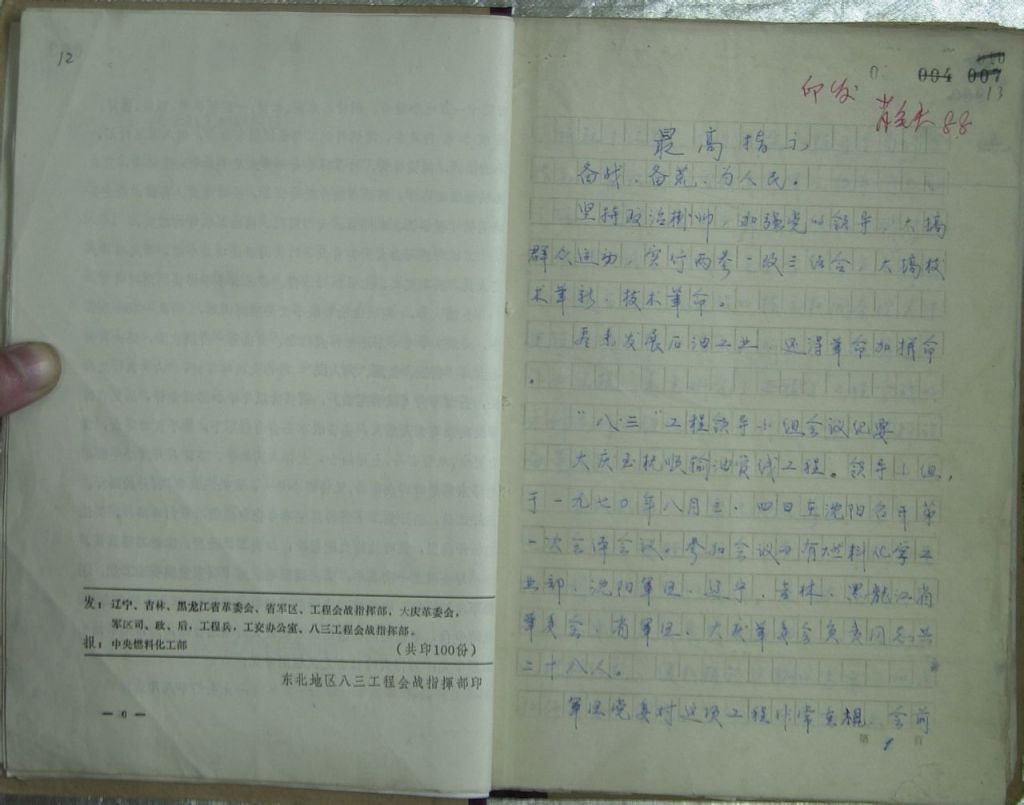 12
发：辽宁、吉林、黑龙江省革委会、省军区、工程会战指挥部，大庆革委会，
军区司、政、后，工程兵，工交办公室、八三工程会战指挥部。
报：中央燃料化工部
（共印100份）
东北地区八三工程会战指挥部印
— 6 —
0 004 007
13
印发
8.8
最高指示
备战、备荒、为人民。
坚持政治挂帅，加强党的领导，大搞
群众运动，实行两参一改三结合，大搞技
术革新、技术革命。
要发展石油工业，还得革命加拼命
。
“八·三”工程领导小组会议纪要
大庆至抚顺输油管线工程。领导小组，
于一九七〇年八月三、四日在沈阳召开第
一次全体会议。参加会议的有燃料化学工
业部、沈阳军区、辽宁、吉林、黑龙江省
革委会、省军区、大庆革委会负责同志共
二十八人。
军区党委对这项工程非常重视，会前
第 1 页